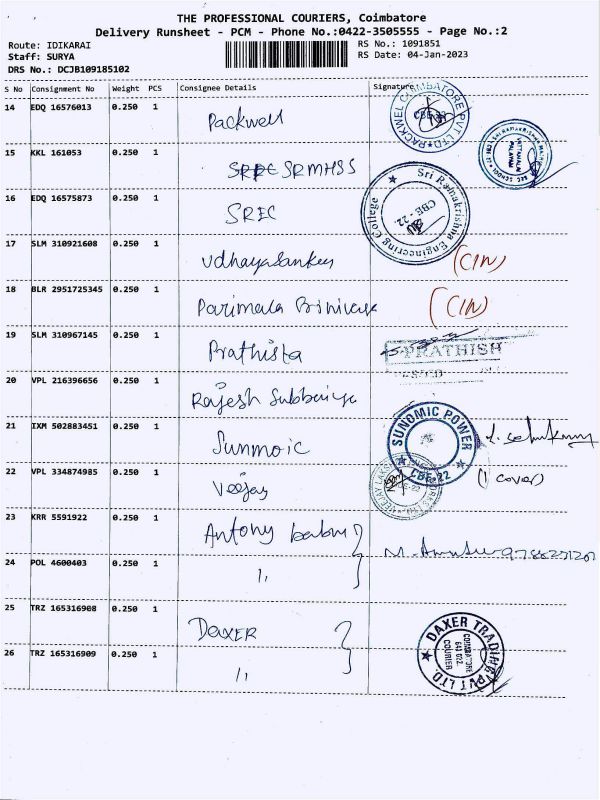 THE PROFESSIONAL COURIERS, Coimbatore
Delivery Runsheet - PCM - Phone No.:0422-3505555 - Page No.:2
Route: IDIKARAI
RS No.: 1091851
Staff: SURYA
RS Date: 04-Jan-2023
DRS No.: DCJB109185102
S No Consignment No Weight PCS Consignee Details Signature
14 EDQ 16576013 0.250 1 Packwell PACKWEL COIMBATORE PVT LTD CBE-22
15 KKL 161053 0.250 1 SRMHSS
16 EDQ 16575873 0.250 1 SREC Sri Ramakrishna Engineering College CBE - 22.
17 SLM 310921608 0.250 1 (CIN)
18 BLR 2951725345 0.250 1 Parimala (CIN)
19 SLM 310967145 0.250 1 Prathista PRATHISH
20 VPL 216396656 0.250 1 Rajesh
21 IXM 502883451 0.250 1 Sunmoic SUNOMIC POWER CBE-22
22 VPL 334874985 0.250 1 Veejay CBE-22 (1 cover)
23 KRR 5591922 0.250 1 Antony
24 POL 4600403 0.250 1 "
25 TRZ 165316908 0.250 1 DAXER DAXER TRADING PVT LTD. COIMBATORE 641 022. COURIER
26 TRZ 165316909 0.250 1 "